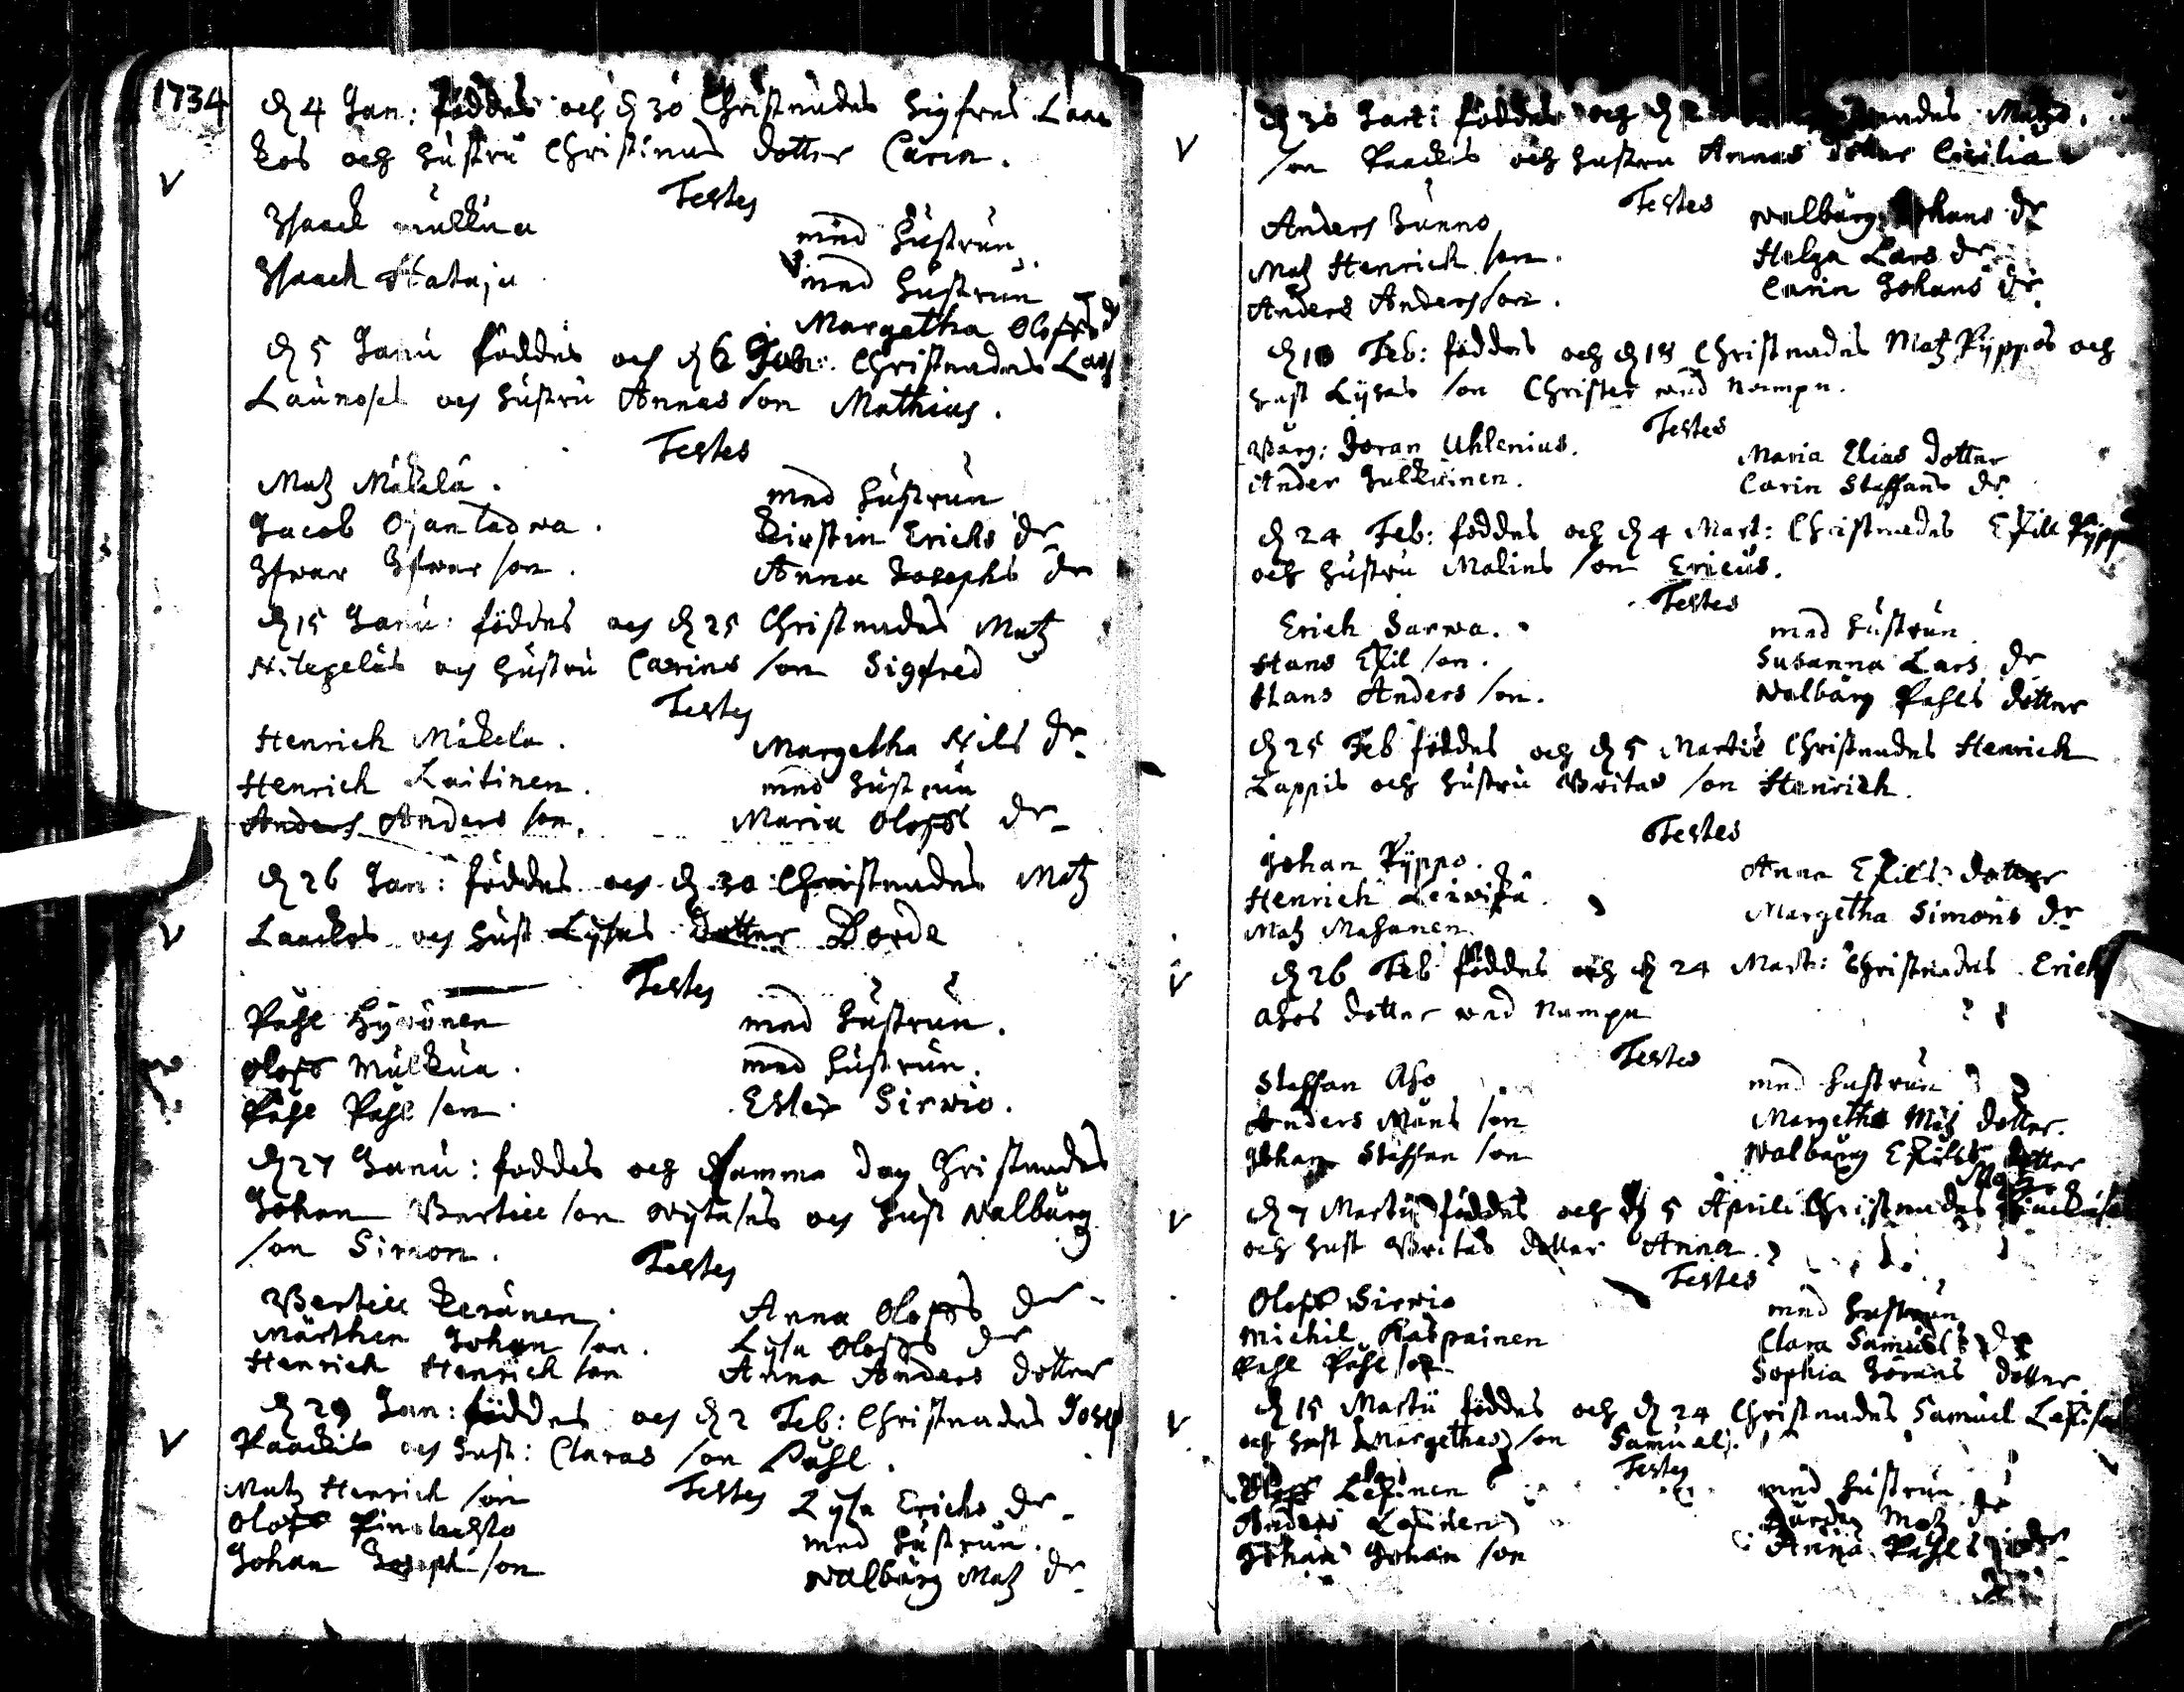 1734
d 4 Jan: föddes och d 30 Christnades Sigfreds Laac
kos och hustru Christinas dotter Carin.
Testes
Isaack mulkua med hustrun
Isaach Hataja med hustrun
Margetha Olofs dr
d 5 Janu föddes och d 6 Christnades Lars
Launosel och hustru Annas son Mathias.
Testes
Matz Mäkelä. med hustrun
Jacob Ojanladwa. Kirstin Erichs dr
Ifwar Ifwar son. Anna Josephs dr
d 15 Janu: föddes och d 25 Christnades Matz
och hustru Carins son Sigfred
Testes
Henrich Mäkelä. Margetha Nils dr
Henrich Laitinen. med hustrun
Anders Anders son. Maria Olofs dr
d 26 Jan: föddes och d 30 Christnades Matz
Laackos och hust Lysas dotter Borda
Testes
Påhl Hyvönen med hustrun.
Olofs Mulkua. med hustrun.
Påhl Påhl son. Ester Sirwio.
d 27 Janu: foddes och d samma dag Christnades
Johan Bertill son Wytasas och hust Walburg
son Simon.
Testes
Bertill Keränen. Anna Olofs dr
Märthen Johan son. Lysa Olofs dr
Henrich Henrich son Anna Anders dotter
d 29 Jan: föddes och d 2 Feb: Christnades Josep
Paackis och hust: Claras son Påhl.
Testes
Matz Henrich son Lysa Erichs dr
Olofs med hustrun.
Johan Joseph son Walburg Matz dr
d 30 föddes och d Matz
son Paackis och hustru Annas dotter Cicilia
Testes
Anders Junno Walburg Johans dr
Matz Henrich son. Helga Lars dr
Anders Andersson. Carin Johans dr
d 10 Feb: föddes och d 18 Christnades Matz Pyppos och
hust Lysas son Christer wid Nampn.
Testes
Borg: Joran Uhlenius. Maria Elias dotter
Ander Julkuinen. Carin Steffans dr
d 24 Feb: föddes och d 4 Mart: Christnades Eskill Pypp
och hustru Malins son Ericus.
Testes
Erich Sarwa. med hustrun
Hans Eskil son. Susanna Lars dr
Hans Anders son. Walburg Påhls dotter
d 25 Feb föddes och d 5 Martii Christnades Henrich
Lappis och hustru Britas son Henrich.
Testes
Johan Pyppo. Anna Eskils dotter
Henrich Margetha Simons dr
Matz Mahanen
d 26 Feb föddes och d 24 Mart: Christnades Erich
Ahos dotter wid Nampn
Testes
Steffan Aho med hustrun
Anders Måns son Margetha Matz dotter.
Johan Steffan son Walburg Eskils dotter
Matz
d 7 Martii föddes och d 5 Aprili Christnades
och hust Britas dotter Anna.
Testes
Olofs Sirwio med hustrun
Michil Kaspainen Clara Samuels dr
Påhl Påhl son Sophia Jörans dotter
d 15 Martii föddes och d 24 Christnades Samuel
och hust Margethas son Samuel.
Testes
Olofs med hustrun
Anders Matz dr
Johan Johan son Anna Påhls dr